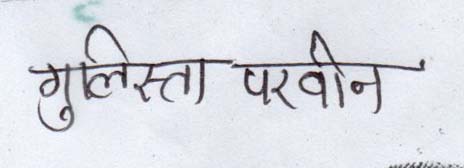 गुलिस्ता परवीन